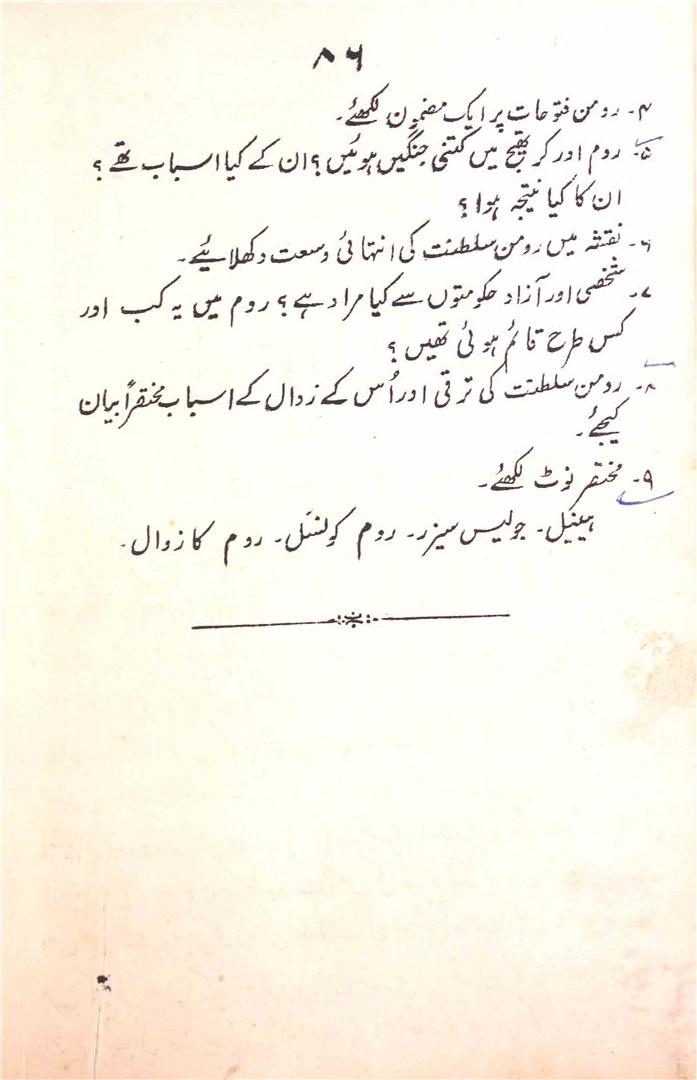 ۸۶
۴۔ رومن فتوحات پر ایک مضمون لکھئے۔
۵۔ روم اور کرتھیج میں کتنی جنگیں ہوئیں؟ ان کے کیا اسباب تھے؟
ان کا کیا نتیجہ ہوا؟
۶۔ نقشہ میں رومن سلطنت کی انتہائی وسعت دکھلایئے۔
۷۔ شخصی اور آزاد حکومتوں سے کیا مراد ہے؟ روم میں یہ کب اور
کس طرح قائم ہوئی تھیں؟
۸۔ رومن سلطنت کی ترقی اور اُس کے زوال کے اسباب مختصراً بیان
کیجئے۔
۹۔ مختصر نوٹ لکھئے۔
ہینیبل۔ جولیس سیزر۔ روم کونسل۔ روم کا زوال۔